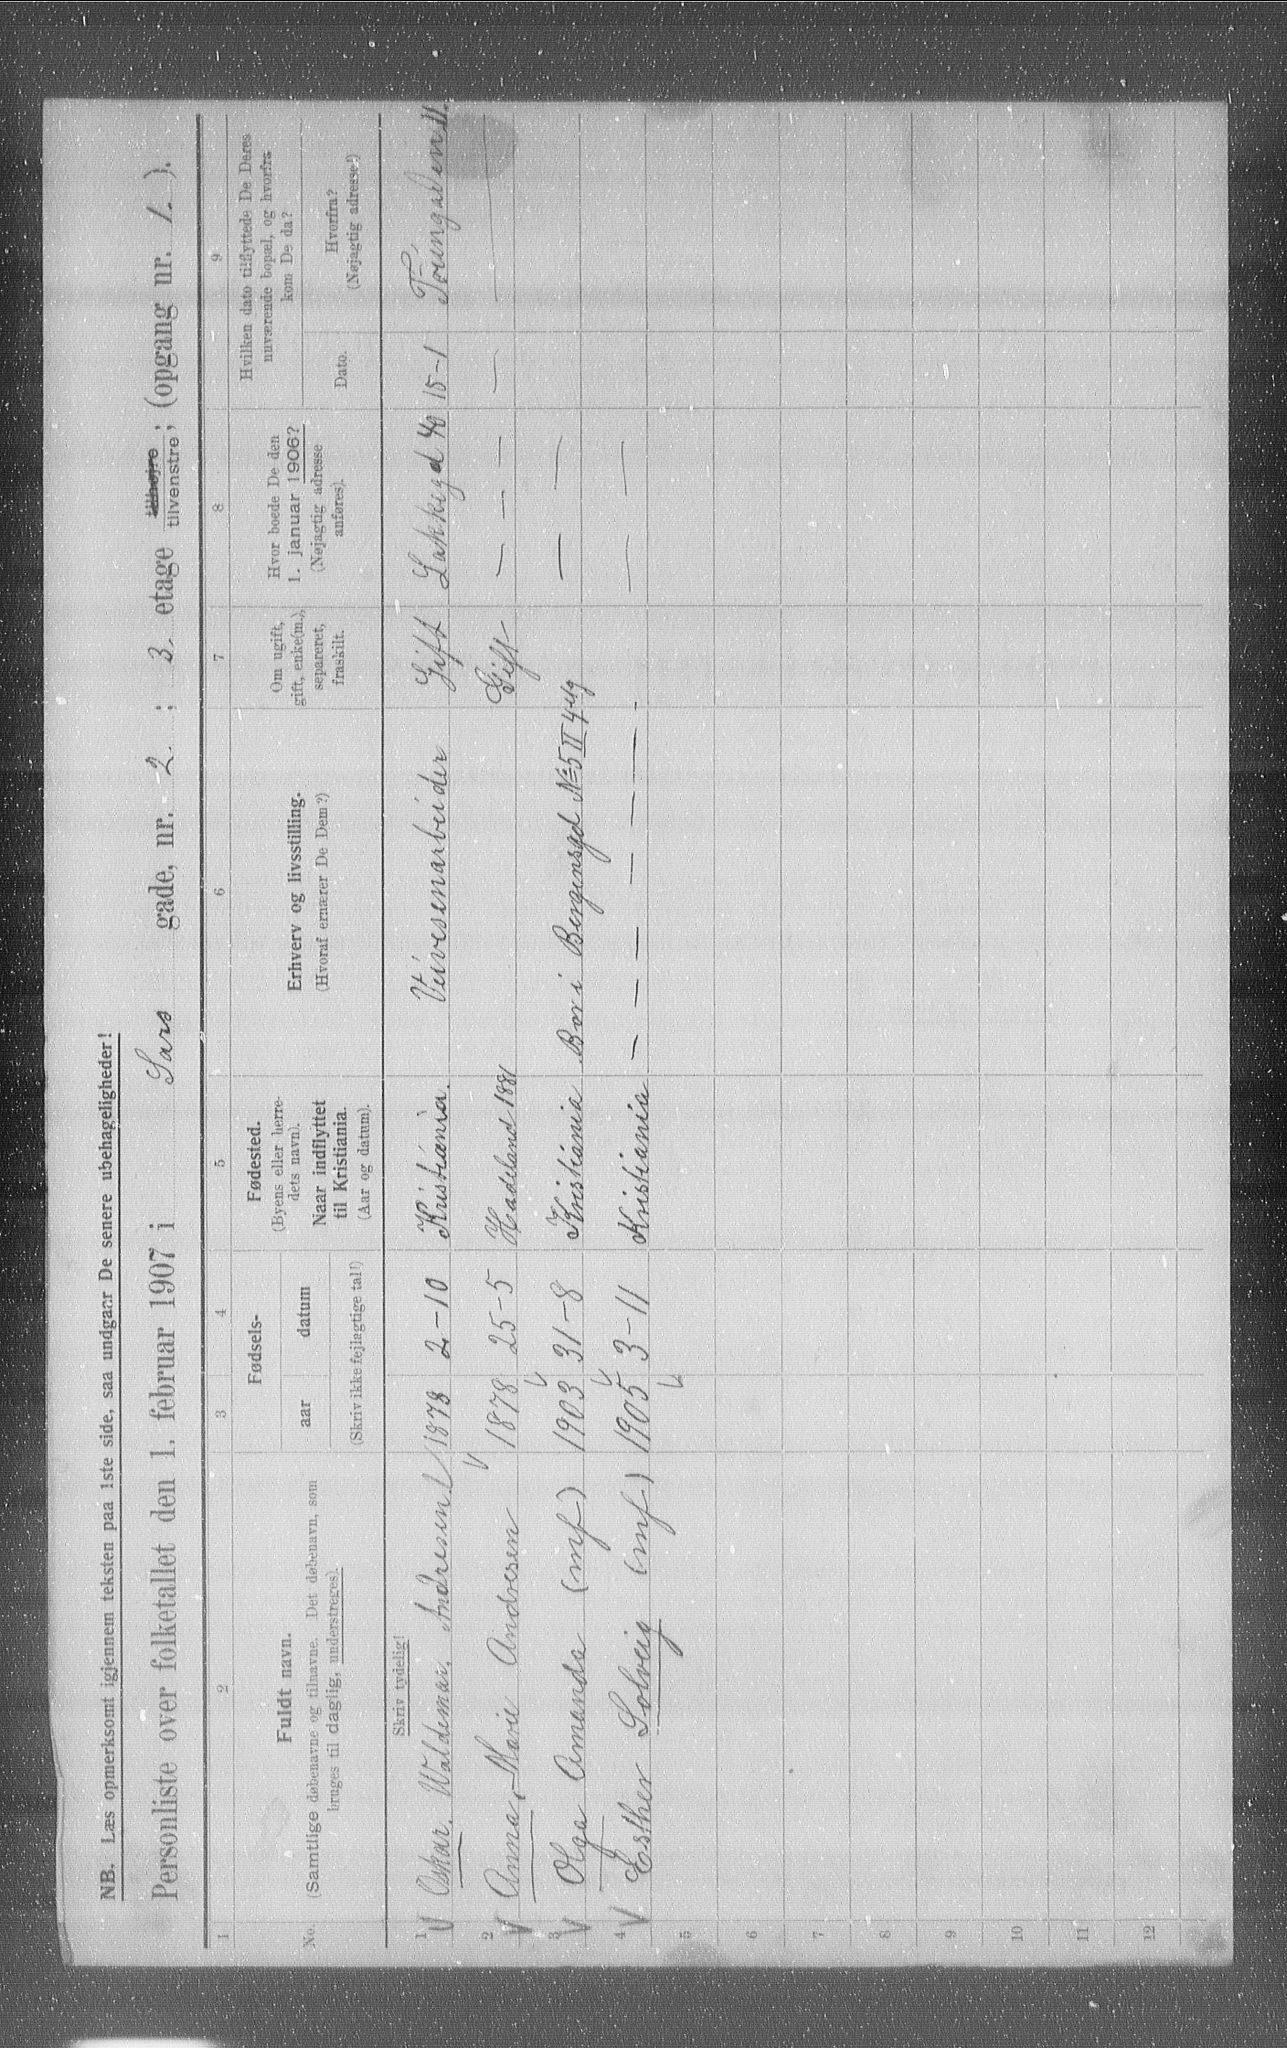 NB. Læs opmerksomt igjennem teksten paa 1ste side, saa undgaar De senere ubehageligheder!
Personliste over folketallet den 1. februar 1907 i Sars gade, nr. 2 ; 3. etage tilhøjre tilvenstre; (opgang nr. 1. ).
1 2 3 4 5 6 7 8 9
No.
Fuldt navn.
(Samtlige døbenavne og tilnavne. Det døbenavn, som
bruges til daglig, understreges).
Fødsels-
aar datum
(Skriv ikke fejlagtige tal!)
Fødested.
(Byens eller herre-
dets navn).
Naar indflyttet
til Kristiania.
(Aar og datum).
Erhverv og livsstilling.
(Hvoraf ernærer De Dem?)
Om ugift,
gift, enke(m.),
separeret,
fraskilt.
Hvor boede De den
1. januar 1906?
(Nøjagtig adresse
anføres).
Hvilken dato tilflyttede De Deres
nuværende bopæl, og hvorfra
kom De da?
Dato.
Hvorfra?
(Nøjagtig adresse!)
Skriv tydelig!
1 Oskar. Waldemar. Andresen 1878 2-10 Kristiania. Veivesenarbeider Gift 15-1
2 Anna, Marie Andresen 1878 25-5 Hadeland 1881 Gift — — — —
3 Olga Amanda (mf) 1903 31-8 Kristiania Bor i No 5 II — —
4 Esther Solveig (mf) 1905 3-11 Kristiania — — — — — — — —
5
6
7
8
9
10
11
12